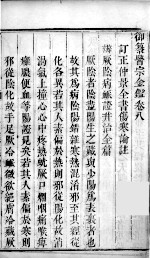 御纂醫宗金鑑卷八
訂正仲景全書傷寒論註
辨厥陰病脈證并治全篇
厥陰者陰盡陽生之藏與少陽為表裏者也
故其為病陰陽錯雜寒熱混淆邪至其經從
化各異若其人素偏於熱則邪從陽化故消
渴氣上撞心心中疼熱
口爛咽痛喉痺
癰膿便血等陽證見矣若其人素偏於寒則
邪從陰化故手足厥冷脈微欲絕膚冷藏厥